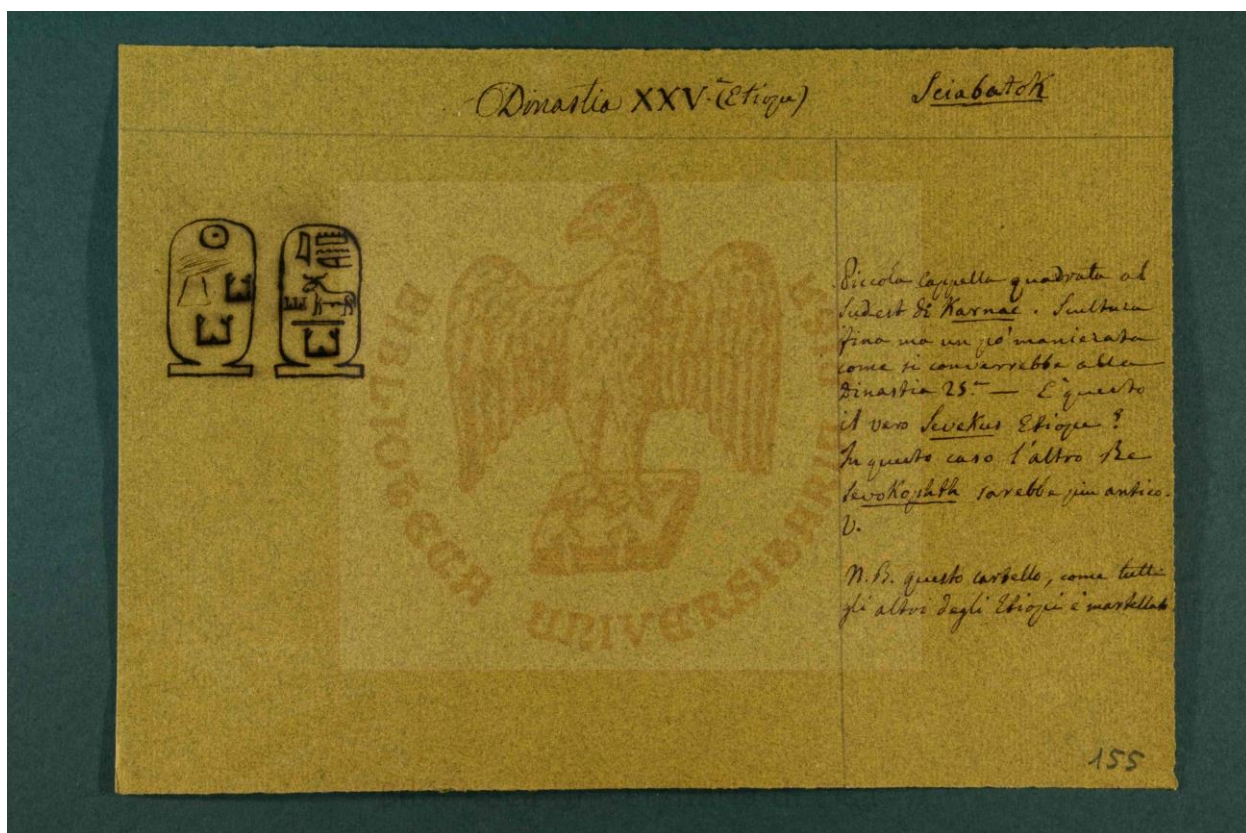 Dinastia XXV.ª (Etiope)
Sciabatok
Piccola cappella quadrata al
Sudest di Karnac. Scultura
fina ma un pò manierata
come si converrebbe alla
Dinastia 25.ª — È questo
il vero Sevekus Etiope?
In questo caso l'altro Re
Sevokophth sarebbe più antico.
V.
N.B. questo cartello, come tutti
gli altri degli Etiopi è martellato
155
BIBLIOTECA UNIVERSITARIA